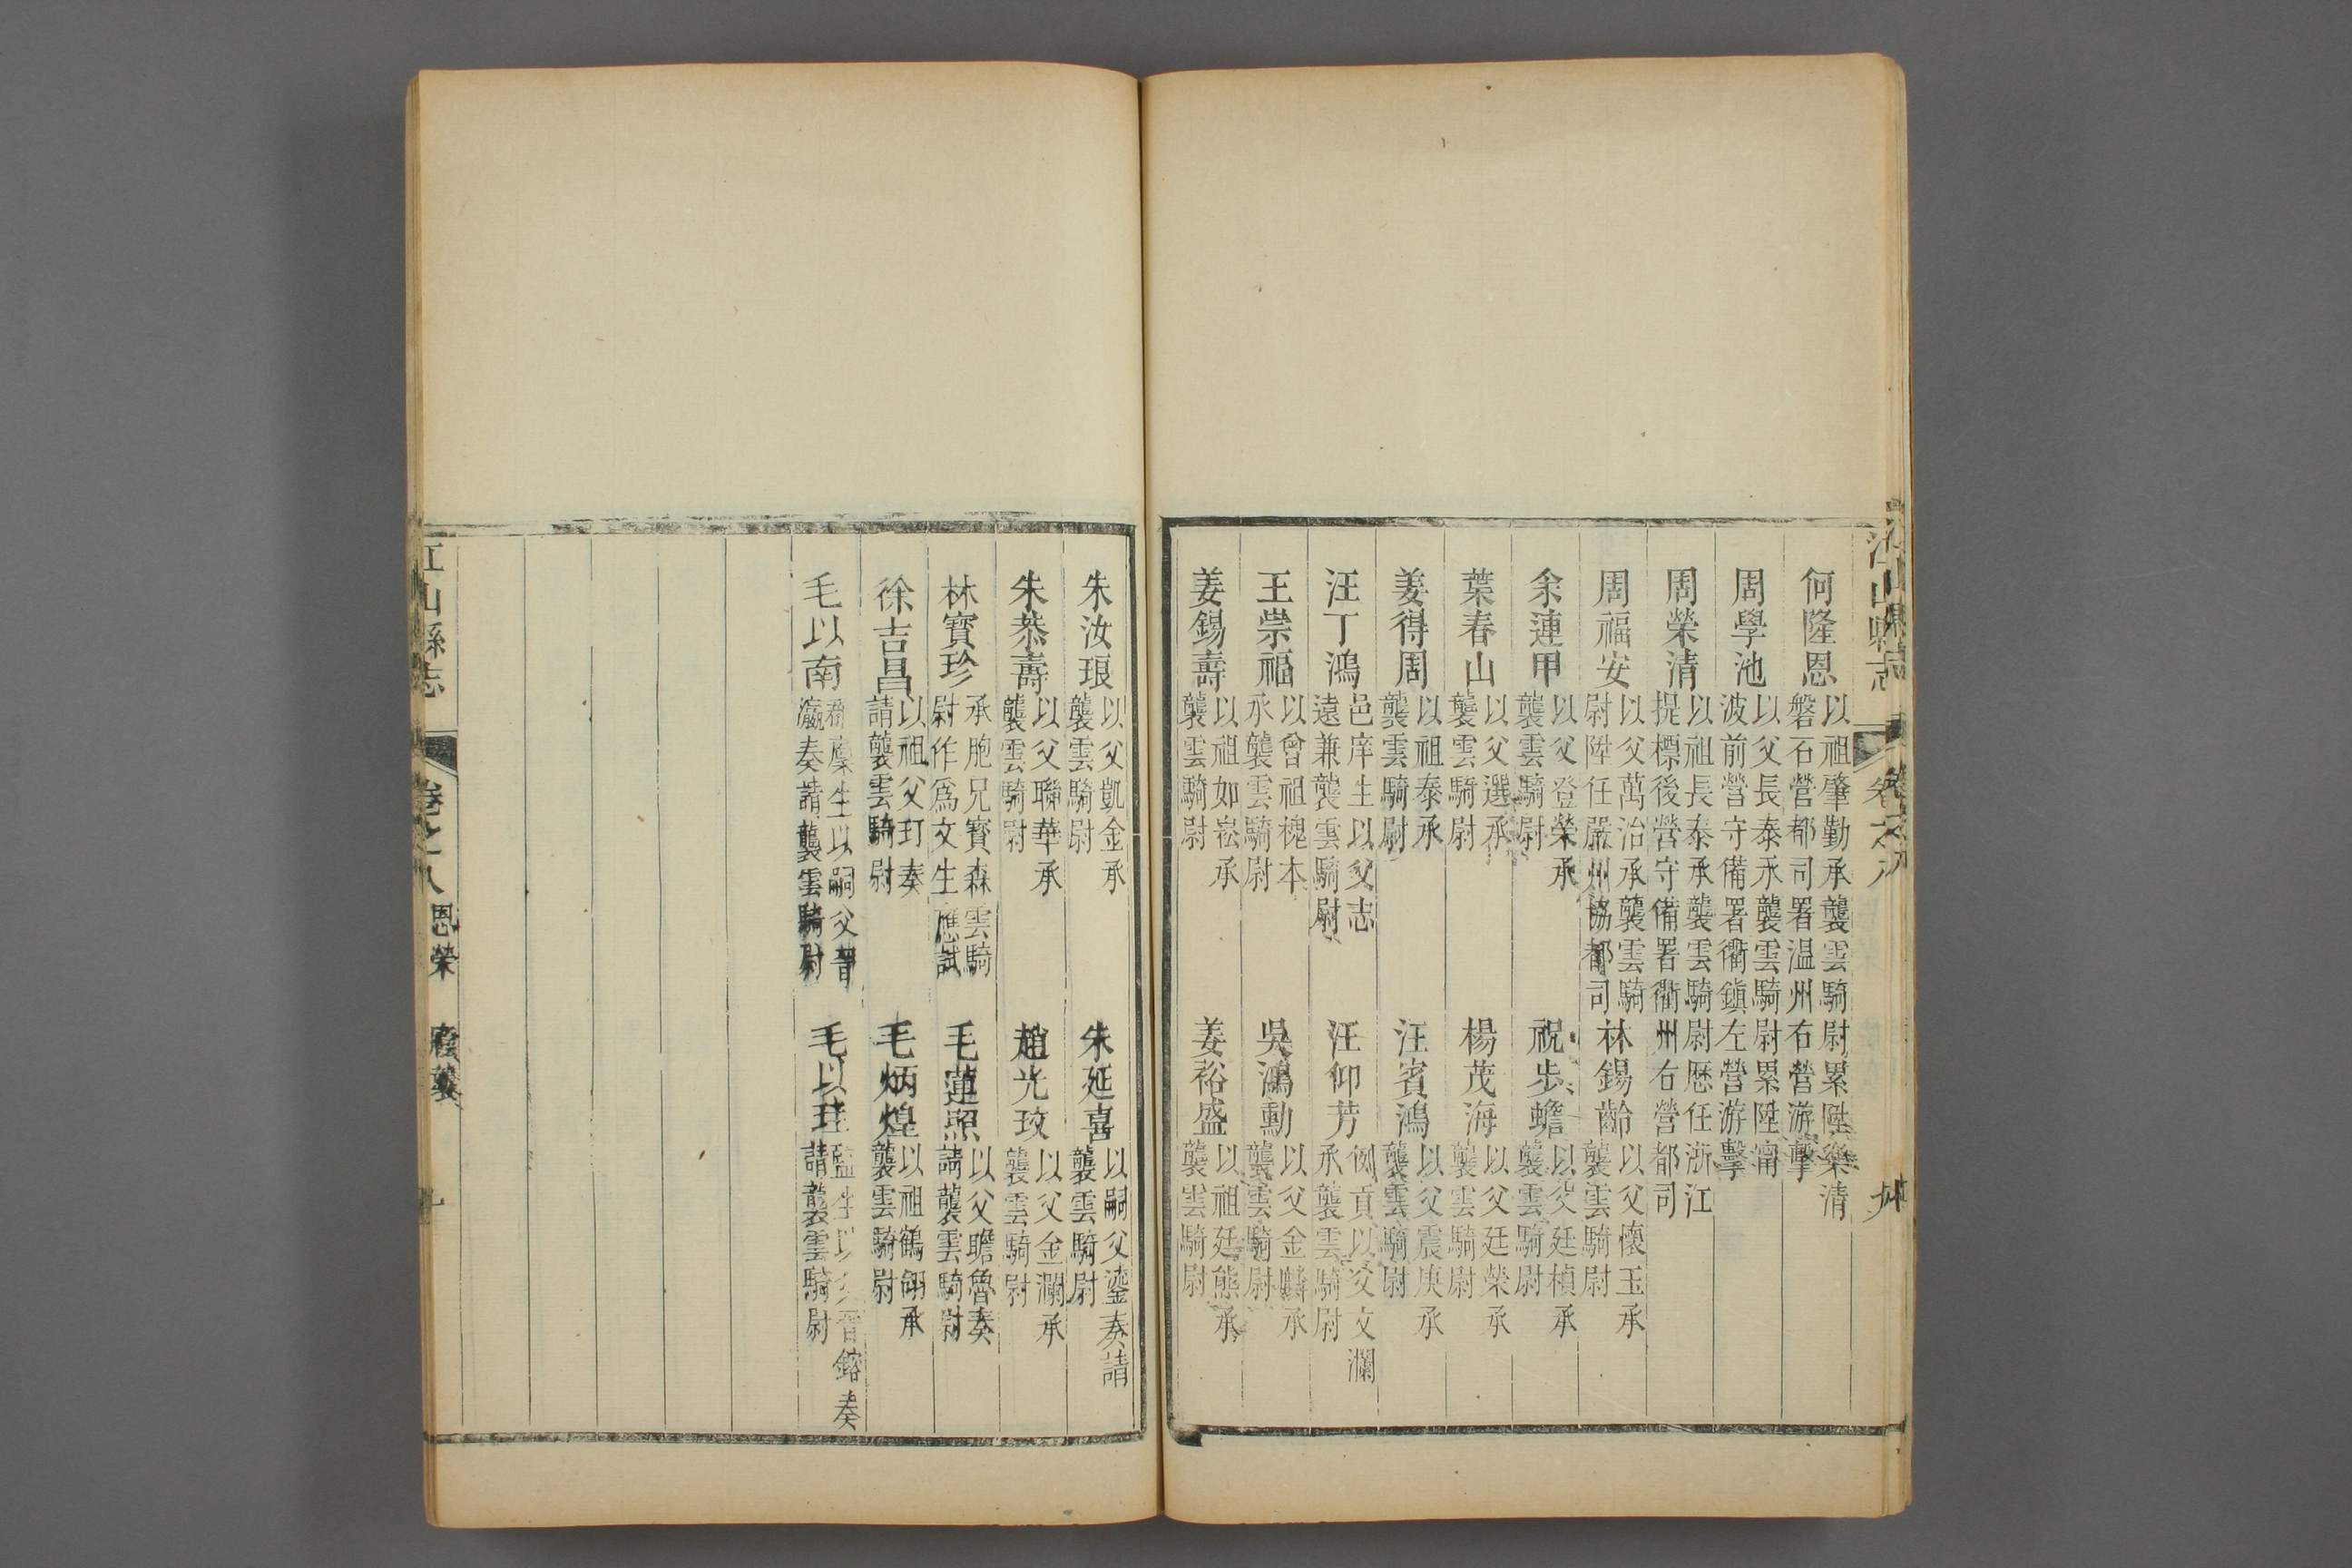 何隆恩 以祖肇勤承襲雲騎尉累陞樂清磐石營都司署温州右營游擊
周學池 以父長泰承襲雲騎尉累陞甯波前營守備署衢鎮左營游擊
周榮清 以祖長泰承襲雲騎尉歷任浙江提標後營守備署衢州右營都司
周福安 以父萬治承襲雲騎尉陞任嚴州協都司 林錫齡 以父懷玉承襲雲騎尉
余連甲 以父登榮承襲雲騎尉 祝步蟾 以父廷楨承襲雲騎尉
葉春山 以父選承襲雲騎尉 楊茂海 以父廷榮承襲雲騎尉
姜得周 以祖泰承襲雲騎尉 汪賓鴻 以父震庚承襲雲騎尉
汪丁鴻 邑庠生以父志遠兼襲雲騎尉 汪仰芳 例貢以父文瀾承襲雲騎尉
王崇福 以曾祖槐本承襲雲騎尉 吳鴻勳 以父金麟承襲雲騎尉
姜錫壽 以祖如崧承襲雲騎尉 姜裕盛 以祖廷熊承襲雲騎尉
朱汝琅 以父凱金承襲雲騎尉 朱延喜 以嗣父鎏奏請襲雲騎尉
朱恭壽 以父聯華承襲雲騎尉 趙光玫 以父金瀾承襲雲騎尉
林寶珍 承胞兄寶森雲騎尉作爲文生應試 毛蓮照 以父瞻魯奏請襲雲騎尉
徐吉昌 以祖父玎奏請襲雲騎尉 毛炳煌 以祖鶴翎承襲雲騎尉
毛以南 廩生以嗣父晉瀛奏請襲雲騎尉 毛以珪 監生以父晉鎔奏請襲雲騎尉
江山縣志 卷之八 恩榮 廕襲 九